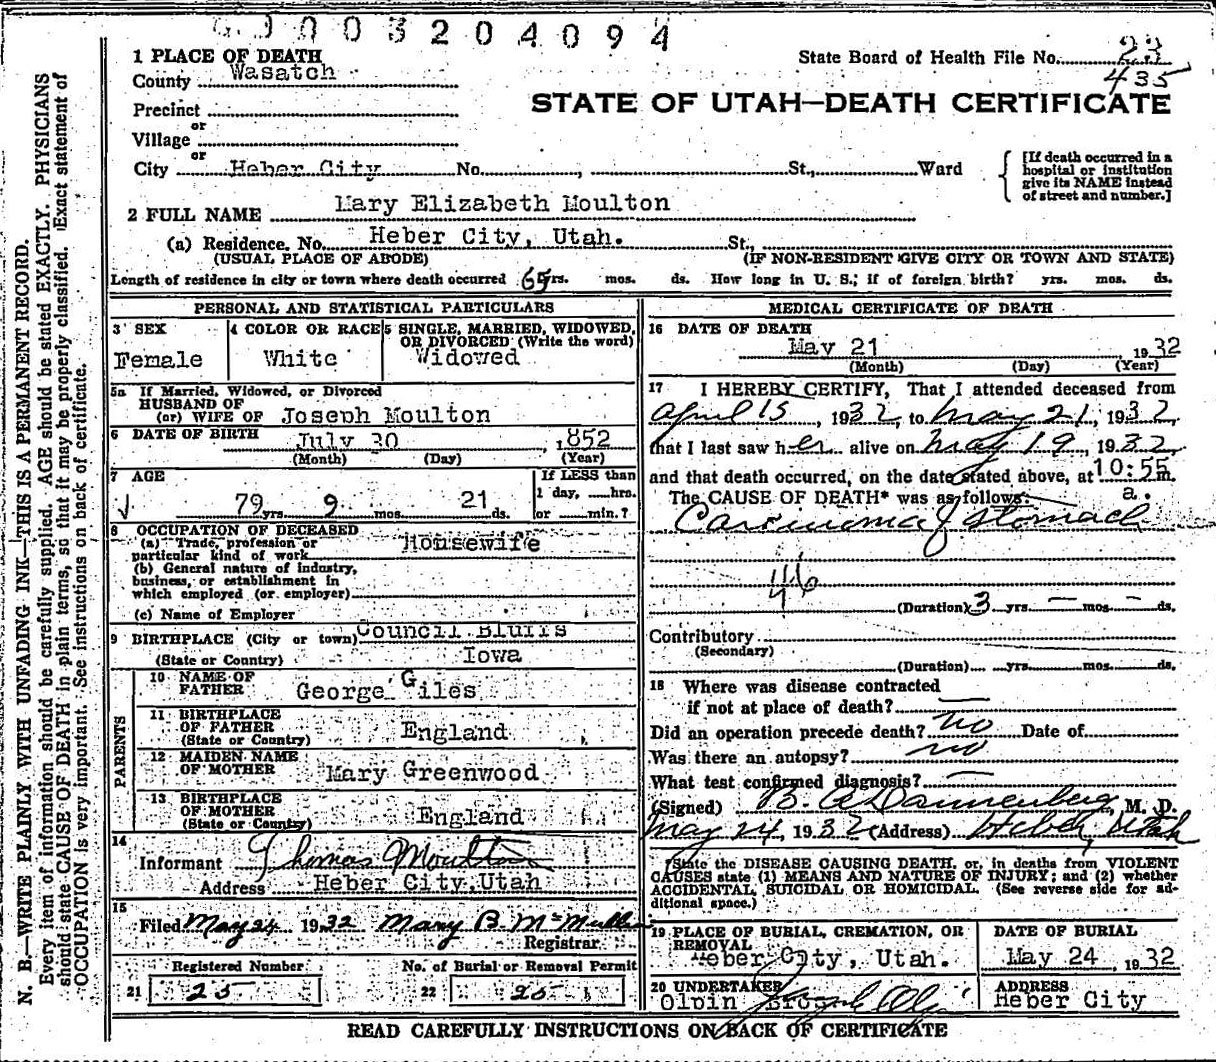 003204094
1 PLACE OF DEATH
State Board of Health File No. 23
County Wasatch
435
STATE OF UTAH—DEATH CERTIFICATE
Precinct
or
Village
or
City Heber City No. , St., Ward
[If death occurred in a
hospital or institution
give its NAME instead
of street and number.]
2 FULL NAME Mary Elizabeth Moulton
(a) Residence. No. Heber City, Utah. St.,
(USUAL PLACE OF ABODE) (IF NON-RESIDENT GIVE CITY OR TOWN AND STATE)
Length of residence in city or town where death occurred 65 yrs. mos. ds. How long in U. S.; if of foreign birth? yrs. mos. ds.
PERSONAL AND STATISTICAL PARTICULARS
3 SEX
Female
4 COLOR OR RACE
White
5 SINGLE, MARRIED, WIDOWED,
OR DIVORCED (Write the word)
Widowed
5a If Married, Widowed, or Divorced
HUSBAND OF
(or) WIFE OF Joseph Moulton
6 DATE OF BIRTH July 30 , 1852
(Month) (Day) (Year)
7 AGE
79 yrs. 9 mos. 21 ds.
If LESS than
1 day, hrs.
or min.?
8 OCCUPATION OF DECEASED
(a) Trade, profession or
particular kind of work Housewife
(b) General nature of industry,
business, or establishment in
which employed (or employer)
(c) Name of Employer
9 BIRTHPLACE (City or town) Council Bluffs
(State or Country) Iowa
PARENTS
10 NAME OF
FATHER George Giles
11 BIRTHPLACE
OF FATHER
(State or Country) England
12 MAIDEN NAME
OF MOTHER Mary Greenwood
13 BIRTHPLACE
OF MOTHER
(State or Country) England
14
Informant Thomas Moulton
Address Heber City, Utah
15
Filed May 24 1932 Mary B. McMullin
Registrar
Registered Number No. of Burial or Removal Permit
21 25 22 25
MEDICAL CERTIFICATE OF DEATH
16 DATE OF DEATH
May 21 , 1932
(Month) (Day) (Year)
17 I HEREBY CERTIFY, That I attended deceased from
April 15, 1932, to May 21, 1932,
that I last saw her alive on May 19, 1932,
and that death occurred, on the date stated above, at 10:55 m.
The CAUSE OF DEATH* was as follows: a.
Carcinoma of Stomach
46
(Duration) 3 yrs. — mos. — ds.
Contributory
(Secondary)
(Duration) yrs. mos. ds.
18 Where was disease contracted
if not at place of death? —
Did an operation precede death? no Date of
Was there an autopsy? no
What test confirmed diagnosis? —
(Signed) Dannenberg, M. D.
May 24, 1932 (Address) Heber, Utah
State the DISEASE CAUSING DEATH, or, in deaths from VIOLENT
CAUSES state (1) MEANS AND NATURE OF INJURY; and (2) whether
ACCIDENTAL, SUICIDAL OR HOMICIDAL. (See reverse side for ad-
ditional space.)
19 PLACE OF BURIAL, CREMATION, OR
REMOVAL
Heber City, Utah.
DATE OF BURIAL
May 24, 1932
20 UNDERTAKER
Olpin
ADDRESS
Heber City
READ CAREFULLY INSTRUCTIONS ON BACK OF CERTIFICATE
N. B.—WRITE PLAINLY WITH UNFADING INK—THIS IS A PERMANENT RECORD.
Every item of information should be carefully supplied. AGE should be stated EXACTLY. PHYSICIANS
should state CAUSE OF DEATH in plain terms, so that it may be properly classified. Exact statement of
OCCUPATION is very important. See instructions on back of certificate.